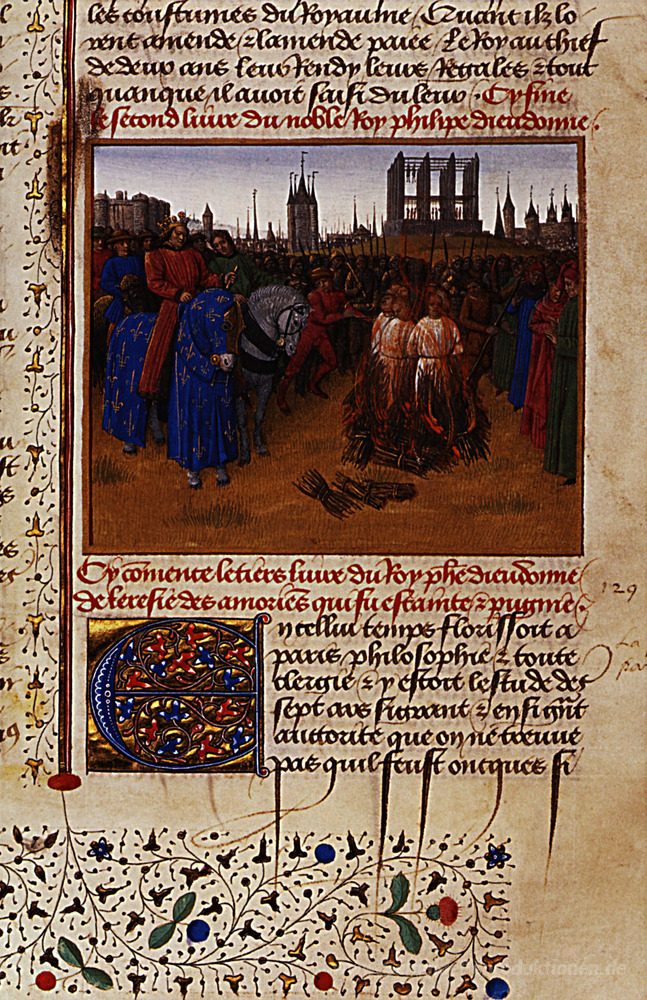 les coustumes du Royaume. Quant ilz lo
rent amende & lamende paiee. Le Roy au chief
de deux ans leur Rendy leurs Regales & tout
quanque il avoit saisi du leur. Cy fine
le second livre du noble Roy philipe dieudonne.
Cy cõmence le tiers livre du Roy phẽ dieudonne
de leresie des amoriẽs qui fu estainte & pugnie.
129
En cellui temps florissoit a
paris philosophie & toute
clergie & y estoit lestude des
sept ars si grant & en si grãt
auctorite que on ne treuve
pas quil feust oncques si